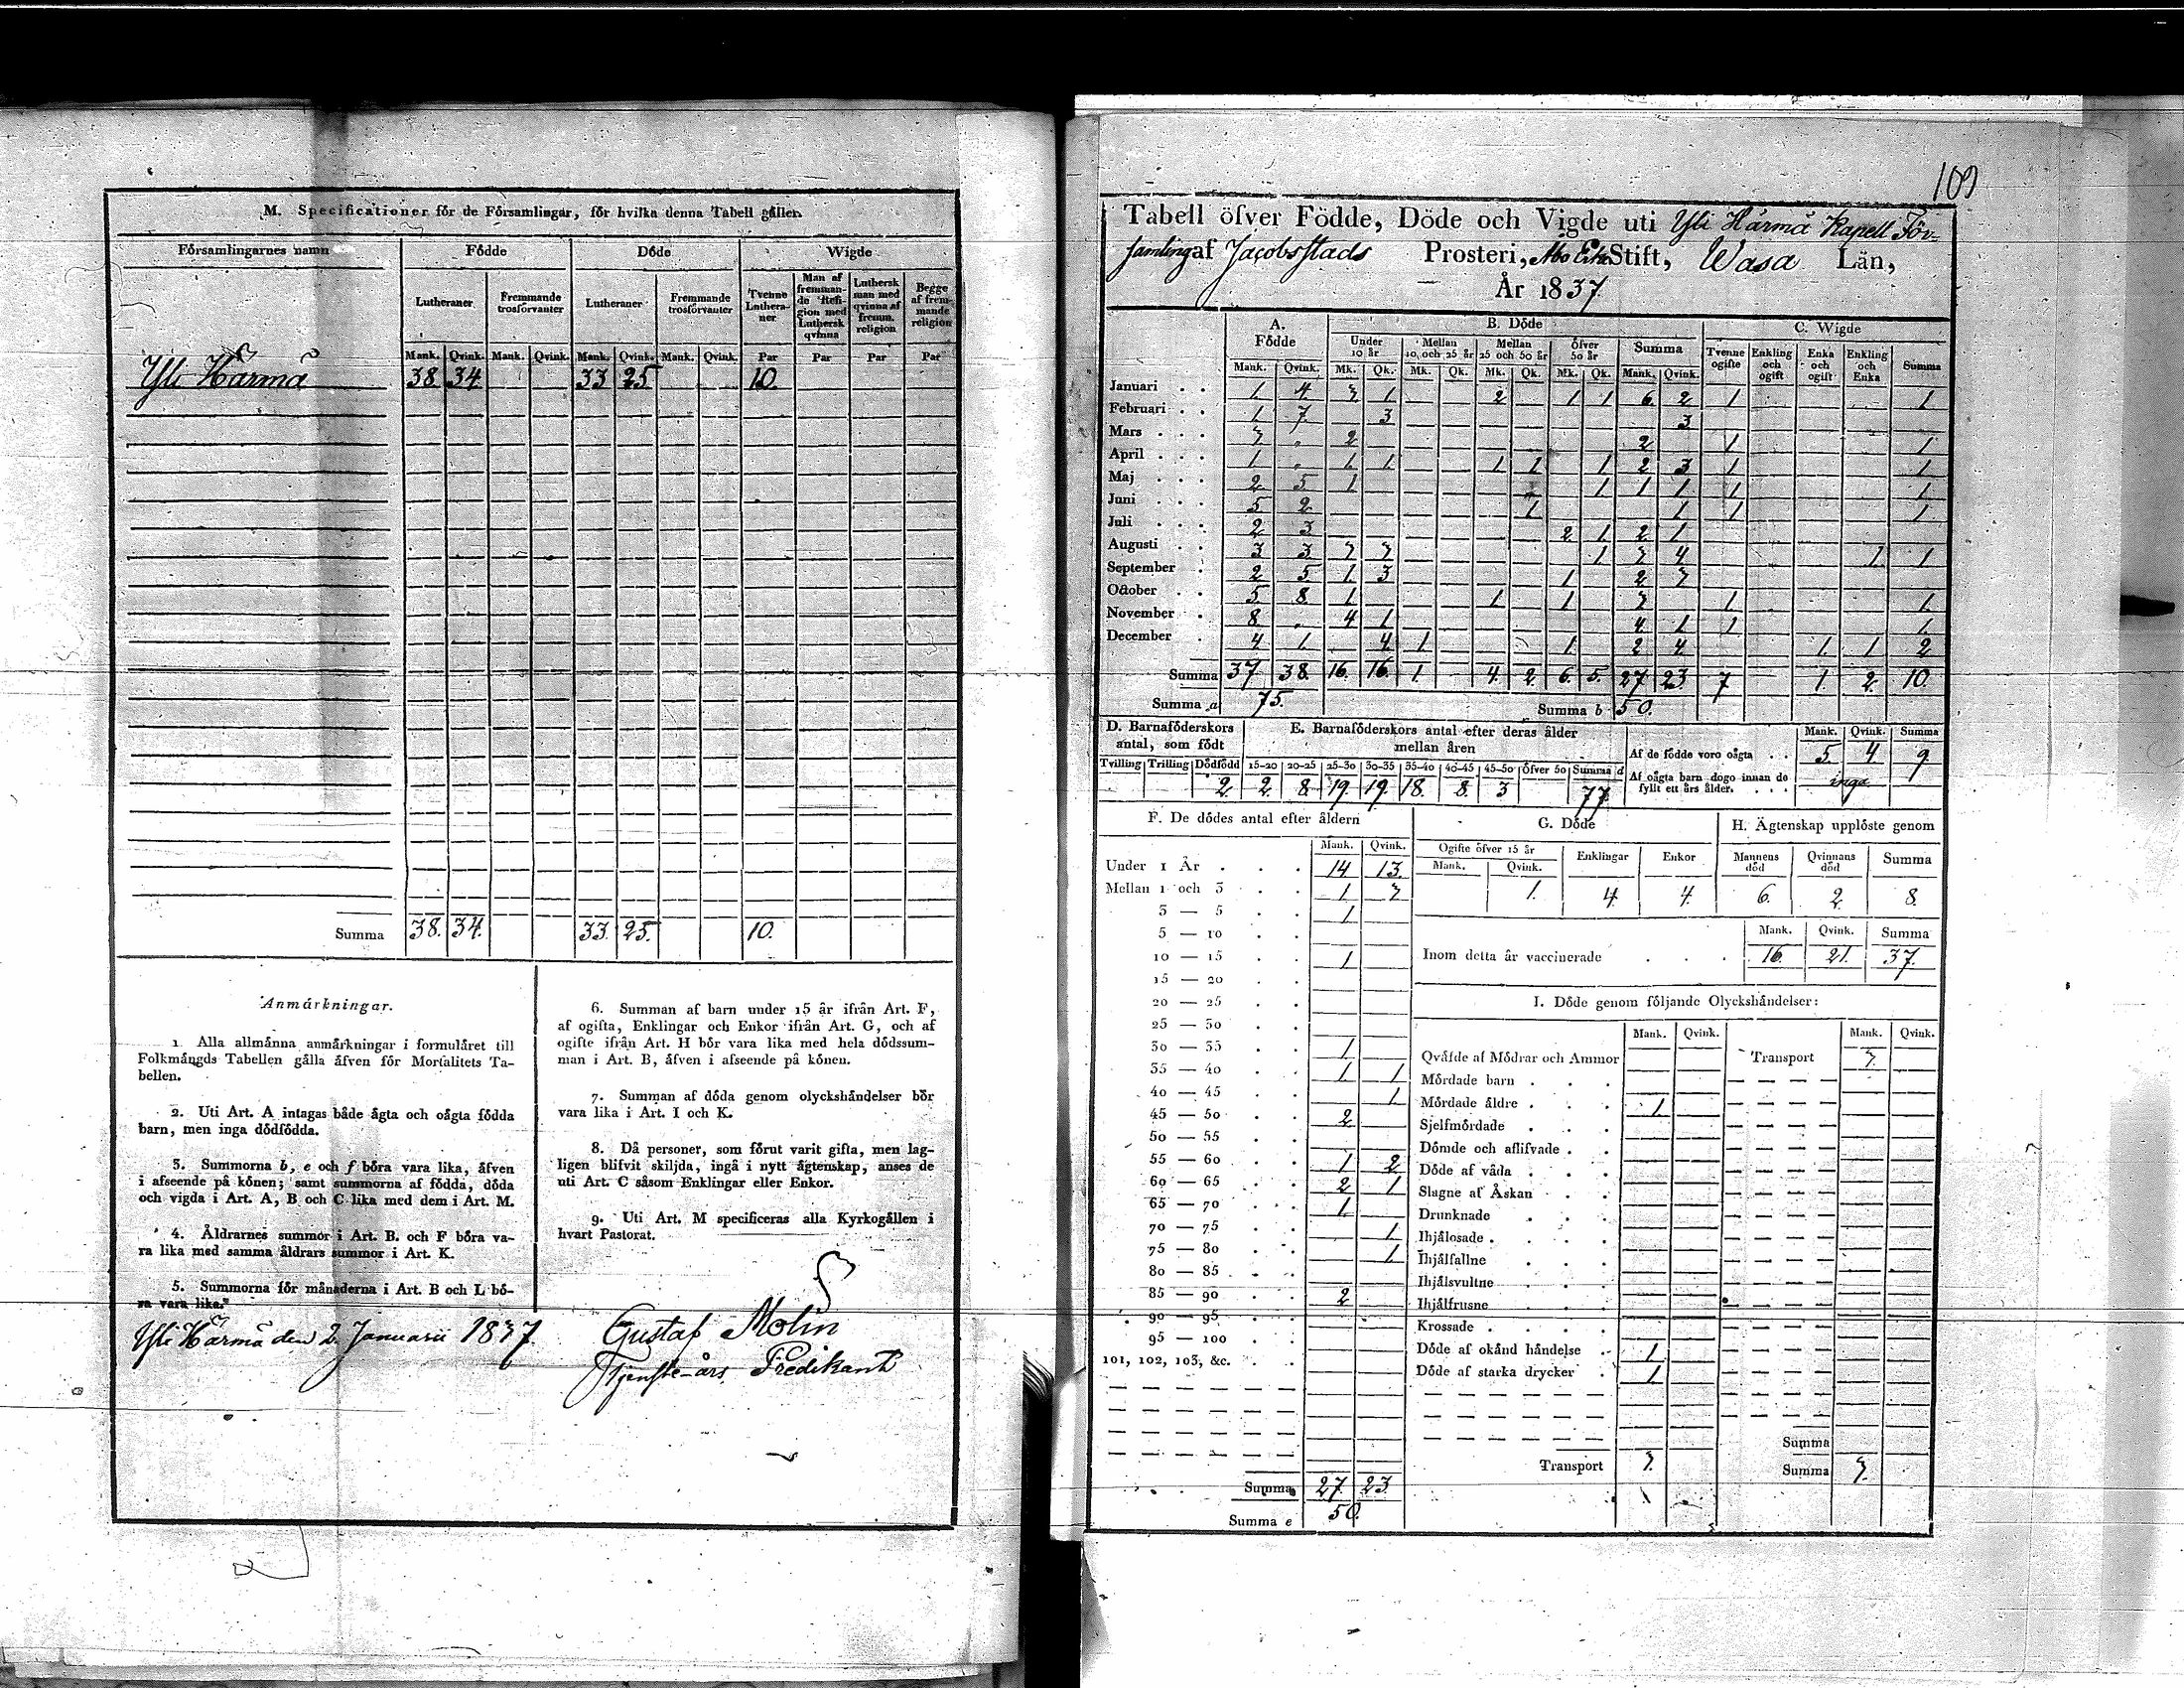 M. Specificationer för de Församlingar, för hvilka denna Tabell gäller.
Församlingarnes namn Födde Döde Wigde
Lutheraner Fremmande trosförvanter Lutheraner Fremmande trosförvanter Tvenne Lutheraner Man af fremmande Religion med Luthersk qvinna Luthersk man med qvinna af fremm. religion Begge af fremmande religion
Mank. Qvink. Mank. Qvink. Mank. Qvink. Mank. Qvink. Par Par Par Par
Yli Härmä 38 34 33 25 10.
Summa 38. 34. 33. 25. 10.
Anmärkningar.
1 Alla allmänna anmärkningar i formuläret till
Folkmängds Tabellen gälla äfven för Mortalitets Ta-
bellen.
2. Uti Art. A intagas både ägta och oägta födda
barn, men inga dödfödda.
3. Summorna b, e och f böra vara lika, äfven
i afseende på könen; samt summorna af födda, döda
och vigda i Art. A, B och C lika med dem i Art. M.
4. Åldrarnes summor i Art. B. och F böra va-
ra lika med samma åldrars summor i Art. K.
5. Summorna för månaderna i Art. B och L bö-
ra vara lika.
6. Summan af barn under 15 år ifrån Art. F,
af ogifta, Enklingar och Enkor ifrån Art. G, och af
ogifte ifrån Art. H bör vara lika med hela dödssum-
man i Art. B, äfven i afseende på könen.
7. Summan af döda genom olyckshändelser bör
vara lika i Art. I och K.
8. Då personer, som förut varit gifta, men lag-
ligen blifvit skiljda, ingå i nytt ägtenskap, anses de
uti Art. C såsom Enklingar eller Enkor.
9. Uti Art. M specificeras alla Kyrkogällen i
hvart Pastorat.
Yli Härmä den 2. Januarii 1837
Gustaf Molin
Tjenste-års Predikant
109
Tabell öfver Födde, Döde och Vigde uti Yli Härmä Kapell För-
samling af Jacobsstads Prosteri, Åbo Erke Stift, Wasa Län,
År 1837.
A. Födde B. Döde C. Wigde
Under 10 år Mellan 10 och 25 år Mellan 25 och 50 år Öfver 50 år Summa Tvenne ogifte Enkling och ogift Enka och ogift Enkling och Enka Summa
Mank. Qvink. Mk. Qk. Mk. Qk. Mk. Qk. Mk. Qk. Mank. Qvink.
Januari . . 1 4 3 1 2 1 1 6 2 1 1
Februari . . 1 7. 3 3
Mars . . . 3 „ 2 2 1 1
April . . . 1 „ 1 1 1 1 1 2 3 1 1
Maj . . . 2 5 1 1 1 1 1 1
Juni . . . 5 2 1 1 1 1
Juli . . . 2 3 2 1 2 1
Augusti . . 3 3 3 3 1 3 4 1 1
September . 2 5 1 3 1 2 3
October . . 5 8 1 1 1 3 1 1
November . . 8 „ 4 1 4 1 1 1
December . 4 1 4 1 1 2 4 1 1 2
Summa 37 38. 16. 16. 1. 4. 2. 6. 5. 27 23. 7 1. 2. 10.
Summa a 75. Summa b 50.
D. Barnaföderskors antal, som födt
Tvilling Trilling Dödfödd
2.
E. Barnaföderskors antal efter deras ålder mellan åren
15-20 20-25 25-30 30-35 35-40 40-45 45-50 Öfver 50 Summa d
2. 8. 19. 19. 18. 8. 3 77.
Mank. Qvink. Summa
Af de födde voro oägta . . 5 4 9
Af oägta barn dogo innan de fyllt ett års ålder. . . . inga
F. De dödes antal efter åldern
Mank. Qvink.
Under 1 År . . . 14 13.
Mellan 1 och 3 . . 1 3
3 — 5 . . 1
5 — 10 . .
10 — 15 . . 1
15 — 20 . .
20 — 25 . .
25 — 30 . .
30 — 35 . . 1
35 — 40 . . 1 1
40 — 45 . . 1
45 — 50 . . 2
50 — 55 . .
55 — 60 . . 1 2
60 — 65 . . 2 1
65 — 70 . . 1
70 — 75 . . 1
75 — 80 . . 1
80 — 85 . .
85 — 90 . . 2
90 — 95 . .
95 — 100 . .
101, 102, 103, &c. . .
Summa 27. 23.
Summa e 50.
G. Döde
Ogifte öfver 15 år Enklingar Enkor
Mank. Qvink.
1. 4. 4.
H. Ägtenskap upplöste genom
Mannens död Qvinnans död Summa
6. 2. 8.
Mank. Qvink. Summa
Inom detta år vaccinerade . . . 16. 21. 37.
I. Döde genom följande Olyckshändelser:
Mank. Qvink. Mank. Qvink.
Qväfde af Mödrar och Ammor Transport 3.
Mördade barn . . .
Mördade äldre . . . 1.
Sjelfmördade . . .
Dömde och aflifvade . .
Döde af våda . . .
Slagne af Åskan . . .
Drunknade . . .
Ihjälosade . . . .
Ihjälfallne . . .
Ihjälsvultne . . .
Ihjälfrusne . . .
Krossade . . . .
Döde af okänd händelse . 1.
Döde af starka drycker . 1.
Summa
Transport 3. Summa 3.